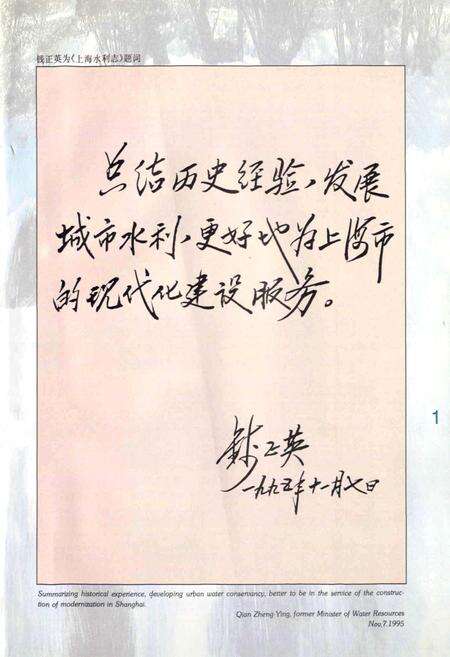 钱正英为《上海水利志》题词
总结历史经验,发展
城市水利,更好地为上海市
的现代化建设服务。
钱正英
一九九五年十一月七日
1
Summarizing historical experience, developing urban water conservancy, better to be in the service of the construc-
tion of modernization in Shanghai.
Qian Zheng-Ying, former Minister of Water Resources
Nov,7.1995